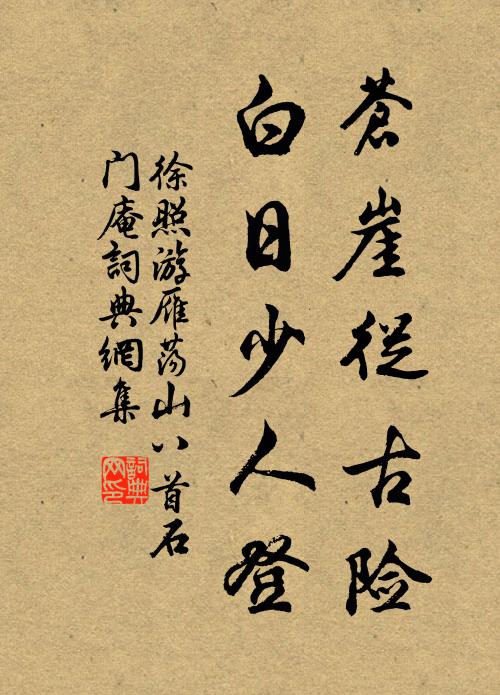 蒼崖從古险
白日少人登
徐照游雁荡山八首石
门庵詞典網集
詞典网印